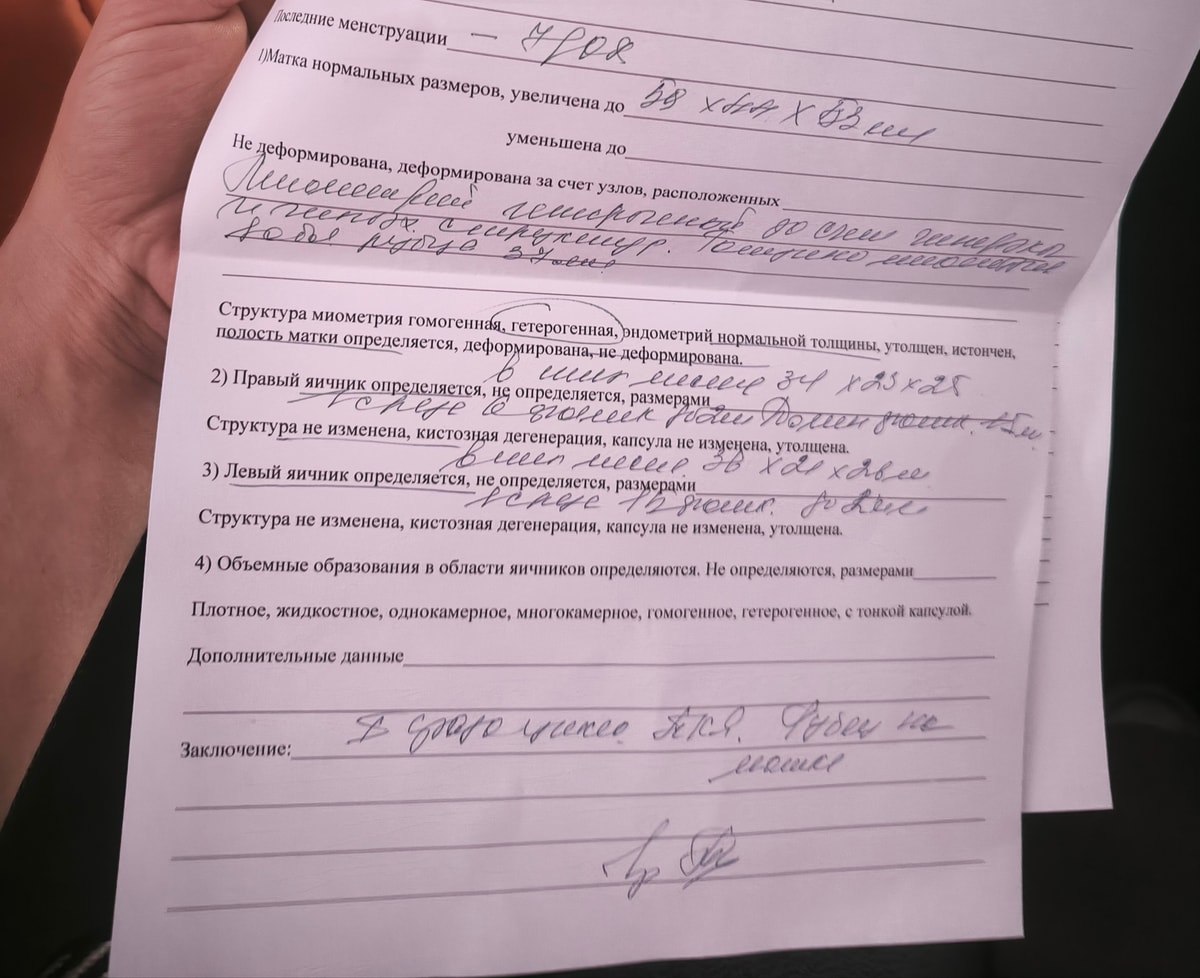 Последние менструации —
1)Матка нормальных размеров, увеличена до 58 х 44 х 53 мм
уменьшена до
Не деформирована, деформирована за счет узлов, расположенных
Миометрий гетерогенный
структур. Толщина миометрия
рубца
Структура миометрия гомогенная, гетерогенная, эндометрий нормальной толщины, утолщен, истончен,
полость матки определяется, деформирована, не деформирована.
34 х 23 х 25
2) Правый яичник определяется, не определяется, размерами
Структура не изменена, кистозная дегенерация, капсула не изменена, утолщена.
36 х 21 х 28 мм
3) Левый яичник определяется, не определяется, размерами
Структура не изменена, кистозная дегенерация, капсула не изменена, утолщена.
4) Объемные образования в области яичников определяются. Не определяются, размерами
Плотное, жидкостное, однокамерное, многокамерное, гомогенное, гетерогенное, с тонкой капсулой.
Дополнительные данные
Заключение: I фаза цикла. Рубец на
матке